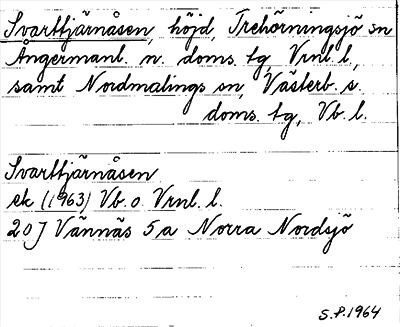 Svarttjärnåsen, höjd, Trehörningsjö sn
Ångermanl. n. doms. tg, Vrnl. l,
samt Nordmalings sn, Västerb. s.
doms. tg, Vb. l.
Svarttjärnåsen
ek (1963) Vb. o. Vrnl. l.
20J Vännäs 5a Norra Nordsjö
S.P. 1964